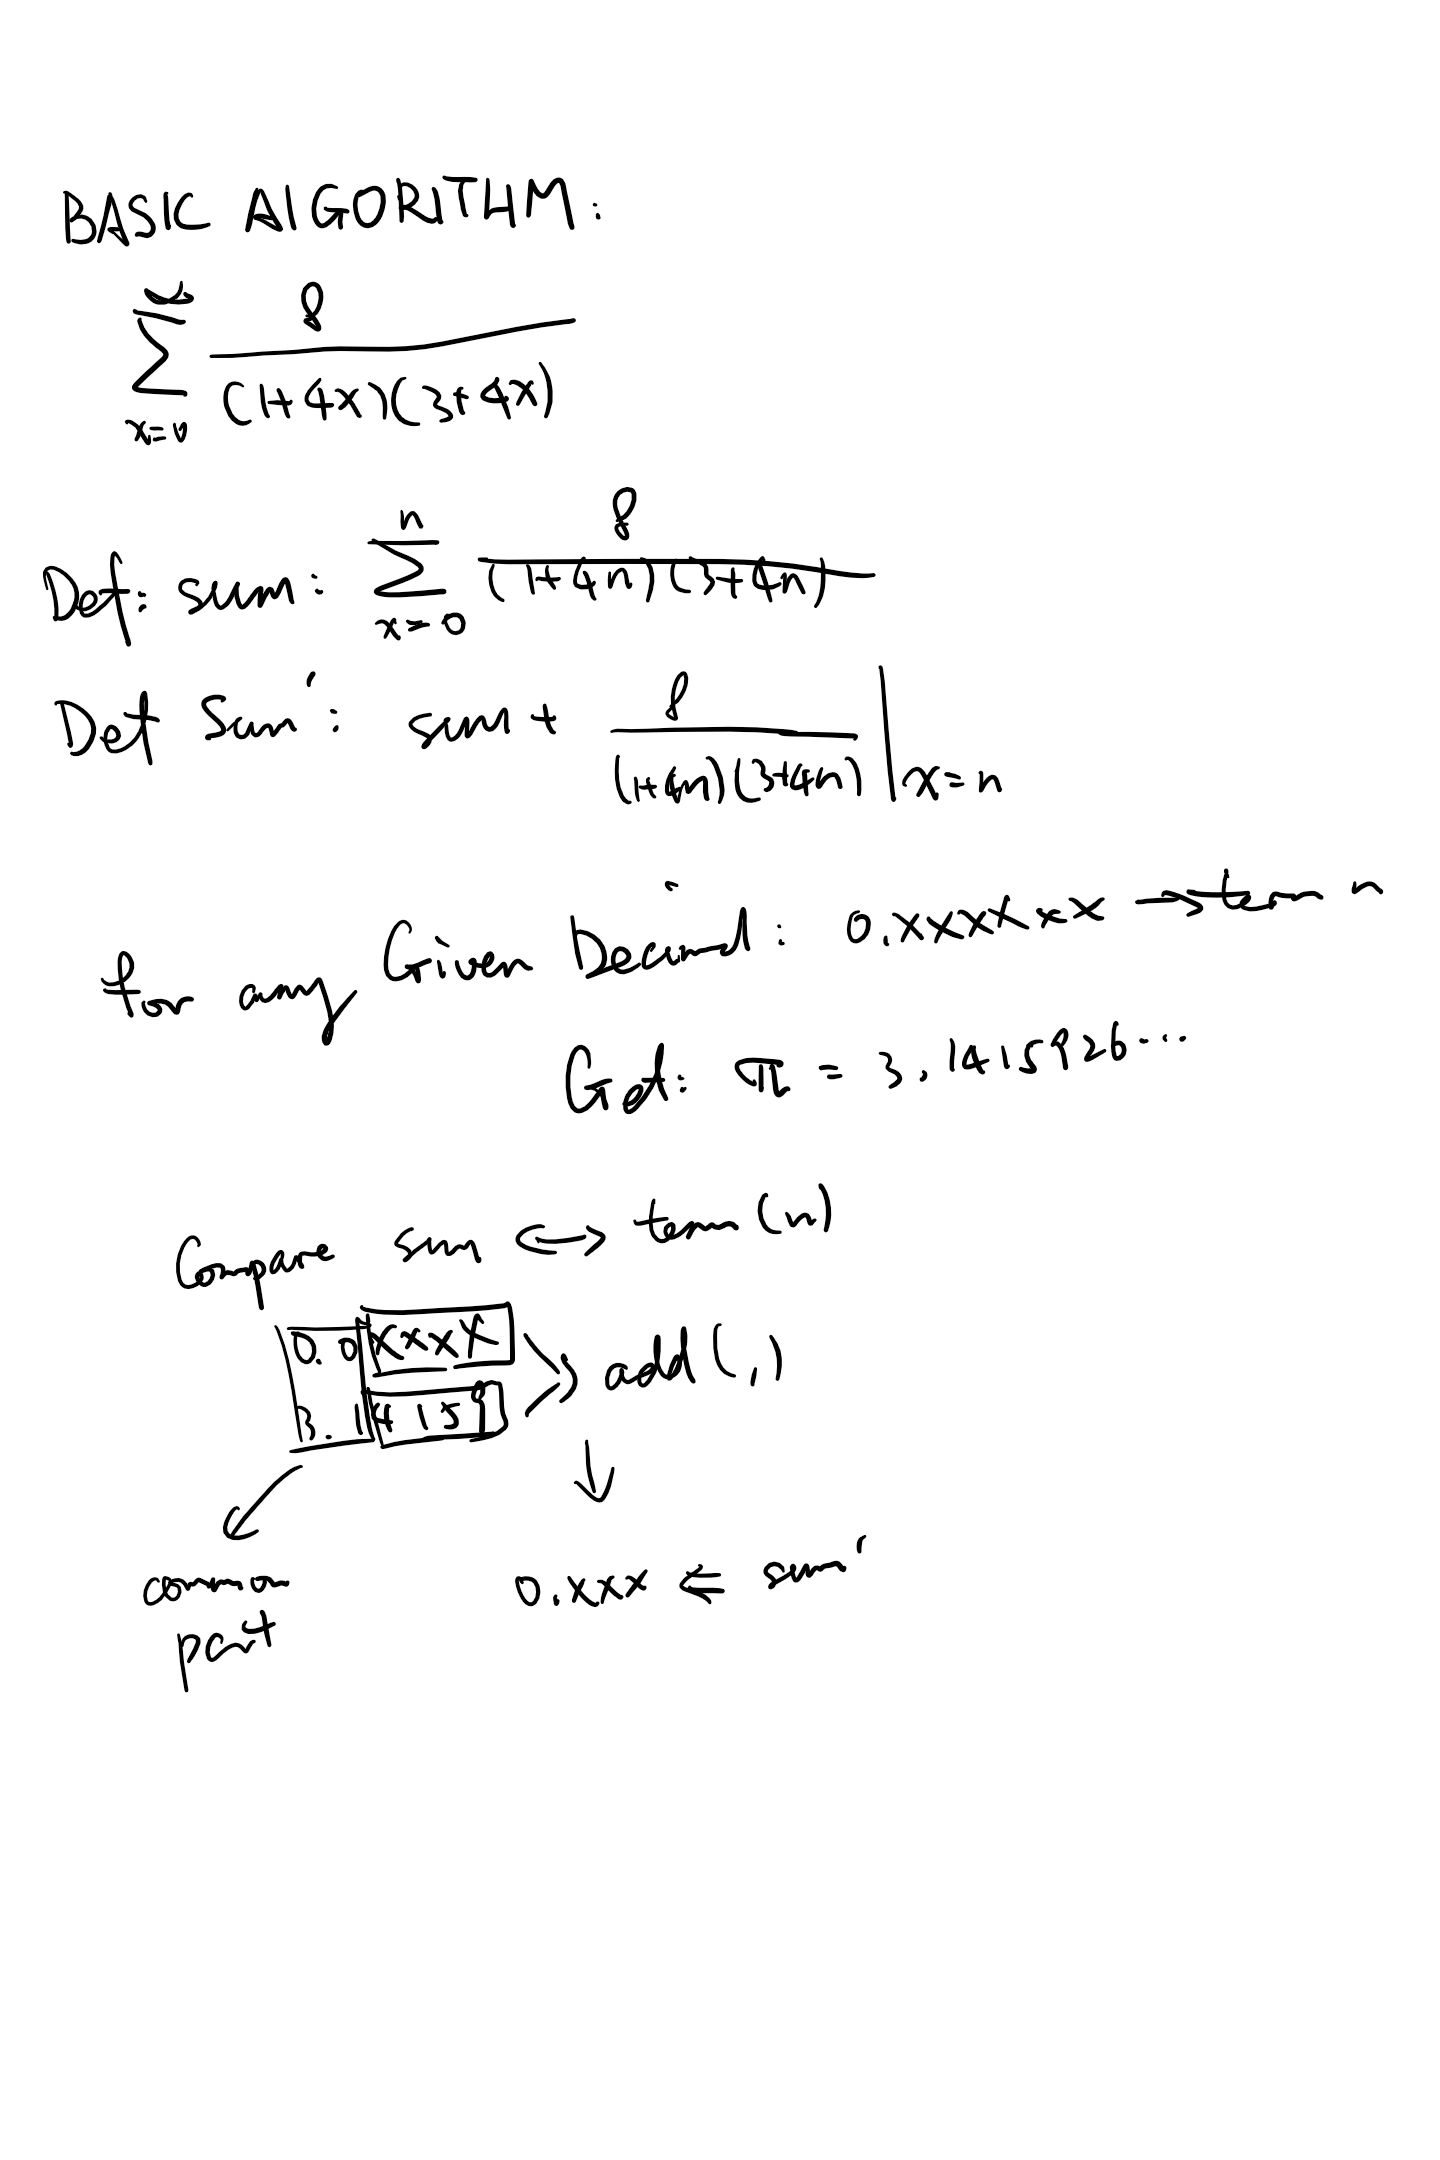 BASIC ALGORITHM:
∞
∑ 8 / (1+4x)(3+4x)
x=0
Def: sum: ∑_{x=0}^{n} 8 / (1+4n)(3+4n)
Def Sum': sum + 8 / (1+4n)(3+4n) |x=n
for any Given Decimal: 0.xxxxxx → term n
Get: π = 3.1415926...
Compare sum ↔ term(n)
0.0xxxx
3.14159
add(,)
common
part
0.xxx ⇐ sum'